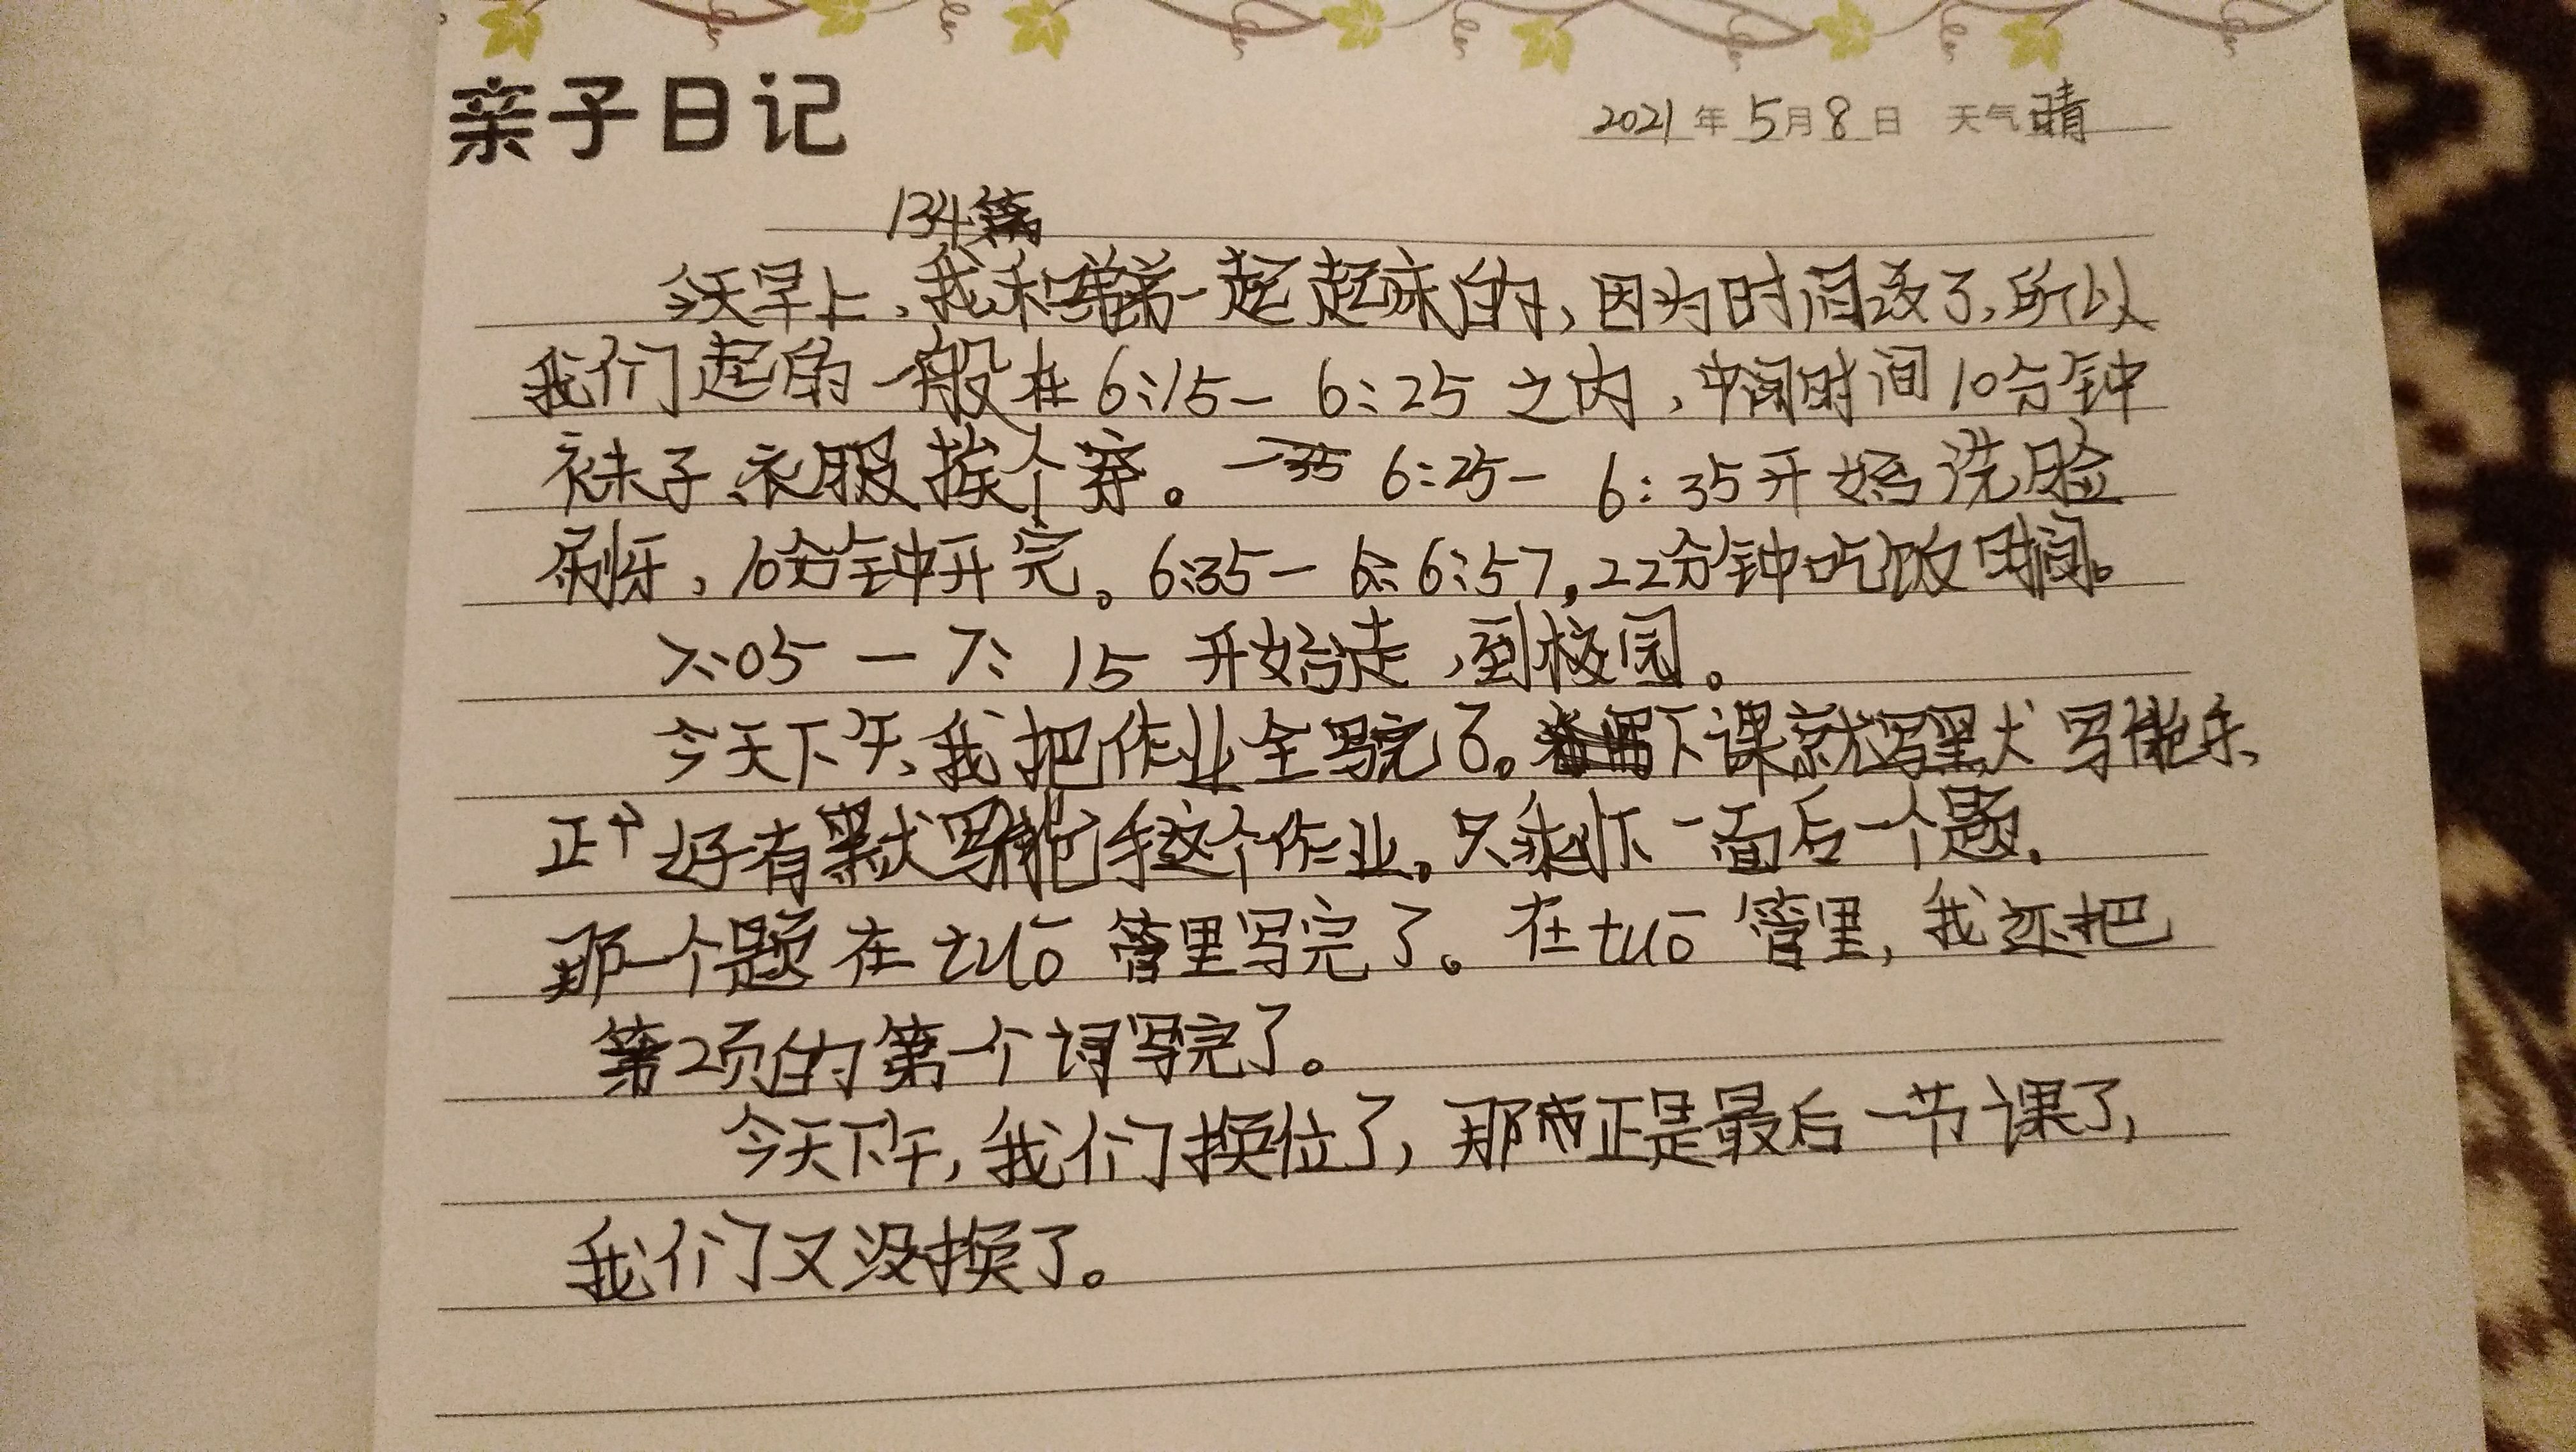 亲子日记
2021年5月8日 天气晴
134篇
今天早上,我和弟弟一起起床的,因为时间改了,所以
我们起的一般在6:15— 6:25之内,中间时间10分钟
袜子、衣服挨个穿。 6:25— 6:35开始洗脸
刷牙,10分钟开完。6:35— 6:57,22分钟吃饭时间。
7:05 — 7: 15 开始走,到校园。
今天下午,我把作业全写完了。下课就写默写能手,
正好有默写能手这个作业。只剩下一面后一个题.
那一个题在tuō管里写完了。在tuō管里,我还把
第2项的第一个词写完了。
今天下午,我们换位了,那正是最后一节课了,
我们又没换了。